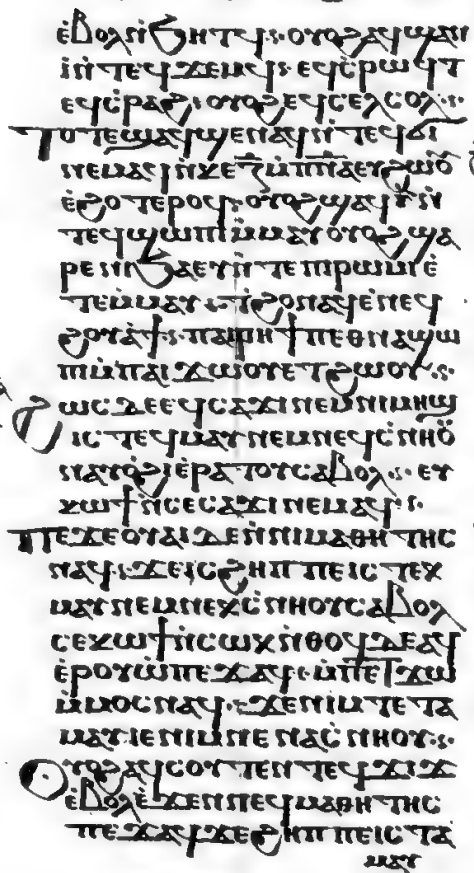 ⲉ̀ⲃⲟⲗⲛ̀ϧⲏⲧϥ·ⲟⲩⲟϩⲁϥϣⲁⲛⲓ
ⲛ̀ⲧⲉϥϫⲉⲙϥ·ⲉϥⲥ̀ⲣⲱϥⲧ
ⲉϥⲥ̀ⲣⲁϩ·ⲟⲩⲟϩⲉϥⲥⲉⲗⲥⲟⲗ·:·
ⲧⲟⲧⲉϣⲁϥϣⲉⲛⲁϥⲛ̀ⲧⲉϥϭⲓ
ⲛⲉⲙⲁϥⲛ̀ⲕⲉⲍ̅ⲙ̀ⲡⲛ̅ⲁ̅ⲉⲩϩⲱⲟ̅
ⲉ̀ϩⲟⲧⲉⲣⲟϥ·ⲟⲩⲟϩϣⲁϥⲓⲛ̀
ⲧⲉϥϣⲱⲡⲓⲙ̀ⲙⲁⲩⲟⲩⲟϩϣⲁ
ⲣⲉⲛⲓϧⲁⲉⲩⲛ̀ⲧⲉⲡⲓⲣⲱⲙⲓⲉ̀
ⲧⲉⲙ̀ⲙⲁⲩ·ⲣ̀ϩⲟⲛⲁϥⲉ̀ⲛⲉϥ
ϩⲟⲩⲁ̀ϯ·:·ⲡⲁⲓⲣⲏϯⲡⲉⲑⲛⲁϣⲱ
ⲡⲓⲙ̀ⲡⲁⲓϫⲱⲟⲩⲉⲧϩⲱⲟⲩ·:·
ϩⲱⲥⲇⲉⲉϥⲥⲁϫⲓⲛⲉⲙⲛⲓⲙⲏϣ
ⲓⲥⲧⲉϥⲙⲁⲩⲛⲉⲙⲛⲉϥⲥ̀ⲛⲏⲟ̅
ⲛⲁⲩⲟ̀ϩⲓⲉ̀ⲣⲁⲧⲟⲩⲥⲁⲃⲟⲗ·:·ⲉⲩ
ⲕⲱϯⲛ̀ⲥⲉⲥⲁϫⲓⲛⲉⲙⲁϥ·:·
ⲡⲉϫⲉⲟⲩⲁⲓⲇⲉⲛ̀ⲛⲓⲙⲁⲑⲏⲧⲏⲥ
ⲛⲁϥ·ϫⲉⲓⲥϩⲏⲡⲡⲉⲓⲥⲧⲉⲕ
ⲙⲁⲩⲛⲉⲙⲛⲉⲕⲥ̀ⲛⲏⲟⲩⲥⲁⲃⲟⲗ
ⲥⲉⲕⲱϯⲛ̀ⲥⲱⲕⲛ̀ⲑⲟϥⲇⲉⲁϥ
ⲉ̀ⲣⲟⲩⲱ̀ⲡⲉϫⲁϥ·ⲙ̀ⲡⲉⲧϫⲱ
ⲙ̀ⲙⲟⲥⲛⲁϥ·:ϫⲉⲛⲓⲙⲧⲉⲧⲁ
ⲙⲁⲩⲓⲉⲛⲓⲙⲛⲉⲛⲁⲥ̀ⲛⲏⲟⲩ·:·
ⲟⲩⲟϩⲁϥⲥⲟⲩⲧⲉⲛⲧⲉϥϫⲓϫ
ⲉ̀ⲃⲟⲗⲉ̀ϫⲉⲛⲛⲉϥⲙⲁⲑⲏⲧⲏⲥ
ⲡⲉϫⲁϥϫⲉϩⲏⲡⲡⲉⲓⲥⲧⲁ
ⲙⲁⲩ